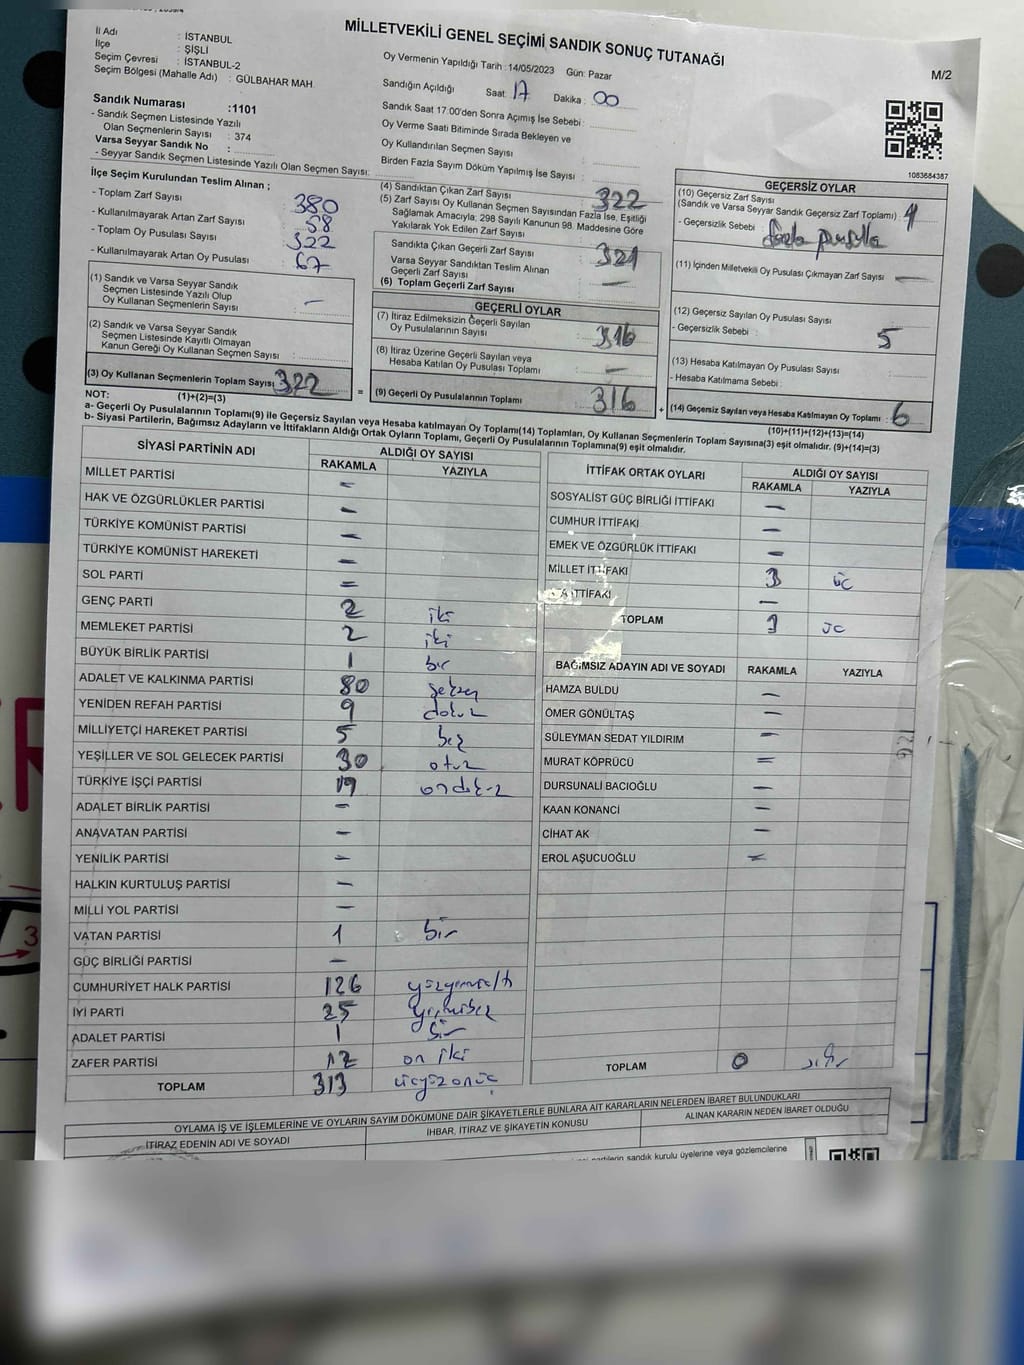 MİLLETVEKİLİ GENEL SEÇİMİ SANDIK SONUÇ TUTANAĞI
M/2
İl Adı : İSTANBUL
İlçe : ŞİŞLİ
Seçim Çevresi : İSTANBUL-2
Seçim Bölgesi (Mahalle Adı) : GÜLBAHAR MAH
Sandık Numarası :1101
- Sandık Seçmen Listesinde Yazılı
Olan Seçmenlerin Sayısı : 374
Varsa Seyyar Sandık No :
- Seyyar Sandık Seçmen Listesinde Yazılı Olan Seçmen Sayısı:
Oy Vermenin Yapıldığı Tarih :14/05/2023 Gün: Pazar
Sandığın Açıldığı Saat: 17 Dakika : 00
Sandık Saat 17:00'den Sonra Açımış İse Sebebi :
Oy Verme Saati Bitiminde Sırada Bekleyen ve
Oy Kullandırılan Seçmen Sayısı
Birden Fazla Sayım Döküm Yapılmış İse Sayısı :
1083684387
İlçe Seçim Kurulundan Teslim Alınan ;
- Toplam Zarf Sayısı : 380
- Kullanılmayarak Artan Zarf Sayısı : 58
- Toplam Oy Pusulası Sayısı : 322
- Kullanılmayarak Artan Oy Pusulası : 67
(1) Sandık ve Varsa Seyyar Sandık
Seçmen Listesinde Yazılı Olup
Oy Kullanan Seçmenlerin Sayısı : -
(2) Sandık ve Varsa Seyyar Sandık
Seçmen Listesinde Kayıtlı Olmayan
Kanun Gereği Oy Kullanan Seçmen Sayısı :
(3) Oy Kullanan Seçmenlerin Toplam Sayısı 322
(1)+(2)=(3)
(4) Sandıktan Çıkan Zarf Sayısı : 322
(5) Zarf Sayısı Oy Kullanan Seçmen Sayısından Fazla İse, Eşitliği
Sağlamak Amacıyla; 298 Sayılı Kanunun 98. Maddesine Göre
Yakılarak Yok Edilen Zarf Sayısı :
Sandıkta Çıkan Geçerli Zarf Sayısı : 321
Varsa Seyyar Sandıktan Teslim Alınan
Geçerli Zarf Sayısı : —
(6) Toplam Geçerli Zarf Sayısı
GEÇERLİ OYLAR
(7) İtiraz Edilmeksizin Geçerli Sayılan
Oy Pusulalarının Sayısı : 316
(8) İtiraz Üzerine Geçerli Sayılan veya
Hesaba Katılan Oy Pusulası Toplamı : —
= (9) Geçerli Oy Pusulalarının Toplamı 316
GEÇERSİZ OYLAR
(10) Geçersiz Zarf Sayısı
(Sandık ve Varsa Seyyar Sandık Geçersiz Zarf Toplamı) : 1
- Geçersizlik Sebebi : fazla pusula
(11) İçinden Milletvekili Oy Pusulası Çıkmayan Zarf Sayısı : —
(12) Geçersiz Sayılan Oy Pusulası Sayısı : 5
- Geçersizlik Sebebi :
(13) Hesaba Katılmayan Oy Pusulası Sayısı
- Hesaba Katılmama Sebebi :
+ (14) Geçersiz Sayılan veya Hesaba Katılmayan Oy Toplamı : 6
(10)+(11)+(12)+(13)=(14)
NOT:
a- Geçerli Oy Pusulalarının Toplamı(9) ile Geçersiz Sayılan ve Hesaba katılmayan Oy Toplamı(14) Toplamları, Oy Kullanan Seçmenlerin Toplam Sayısına(3) eşit olmalıdır. (9)+(14)=(3)
b- Siyasi Partilerin, Bağımsız Adayların ve İttifakların Aldığı Ortak Oyların Toplamı, Geçerli Oy Pusulalarının Toplamına(9) eşit olmalıdır.
SİYASİ PARTİNİN ADI ALDIĞI OY SAYISI
RAKAMLA YAZIYLA
MİLLET PARTİSİ -
HAK VE ÖZGÜRLÜKLER PARTİSİ -
TÜRKİYE KOMÜNİST PARTİSİ -
TÜRKİYE KOMÜNİST HAREKETİ -
SOL PARTİ =
GENÇ PARTİ 2 iki
MEMLEKET PARTİSİ 2 iki
BÜYÜK BİRLİK PARTİSİ 1 bir
ADALET VE KALKINMA PARTİSİ 80 seksen
YENİDEN REFAH PARTİSİ 9 dokuz
MİLLİYETÇİ HAREKET PARTİSİ 5 beş
YEŞİLLER VE SOL GELECEK PARTİSİ 30 otuz
TÜRKİYE İŞÇİ PARTİSİ 19 ondokuz
ADALET BİRLİK PARTİSİ -
ANAVATAN PARTİSİ -
YENİLİK PARTİSİ -
HALKIN KURTULUŞ PARTİSİ -
MİLLİ YOL PARTİSİ -
VATAN PARTİSİ 1 bir
GÜÇ BİRLİĞİ PARTİSİ -
CUMHURİYET HALK PARTİSİ 126 yüzyirmialtı
İYİ PARTİ 25 yirmibeş
ADALET PARTİSİ 1 bir
ZAFER PARTİSİ 12 on iki
TOPLAM 313 üçyüzonüç
İTTİFAK ORTAK OYLARI ALDIĞI OY SAYISI
RAKAMLA YAZIYLA
SOSYALİST GÜÇ BİRLİĞİ İTTİFAKI —
CUMHUR İTTİFAKI —
EMEK VE ÖZGÜRLÜK İTTİFAKI —
MİLLET İTTİFAKI 3 üç
İTTİFAKI —
TOPLAM 3 üç
BAĞIMSIZ ADAYIN ADI VE SOYADI RAKAMLA YAZIYLA
HAMZA BULDU —
ÖMER GÖNÜLTAŞ —
SÜLEYMAN SEDAT YILDIRIM —
MURAT KÖPRÜCÜ =
DURSUNALİ BACIOĞLU —
KAAN KONANCİ —
CİHAT AK —
EROL AŞUCUOĞLU —
TOPLAM 0 sıfır
126
OYLAMA İŞ VE İŞLEMLERİNE VE OYLARIN SAYIM DÖKÜMÜNE DAİR ŞİKAYETLERLE BUNLARA AİT KARARLARIN NELERDEN İBARET BULUNDUKLARI
İTİRAZ EDENİN ADI VE SOYADI İHBAR, İTİRAZ VE ŞİKAYETİN KONUSU ALINAN KARARIN NEDEN İBARET OLDUĞU
partilerin sandık kurulu üyelerine veya gözlemcilerine